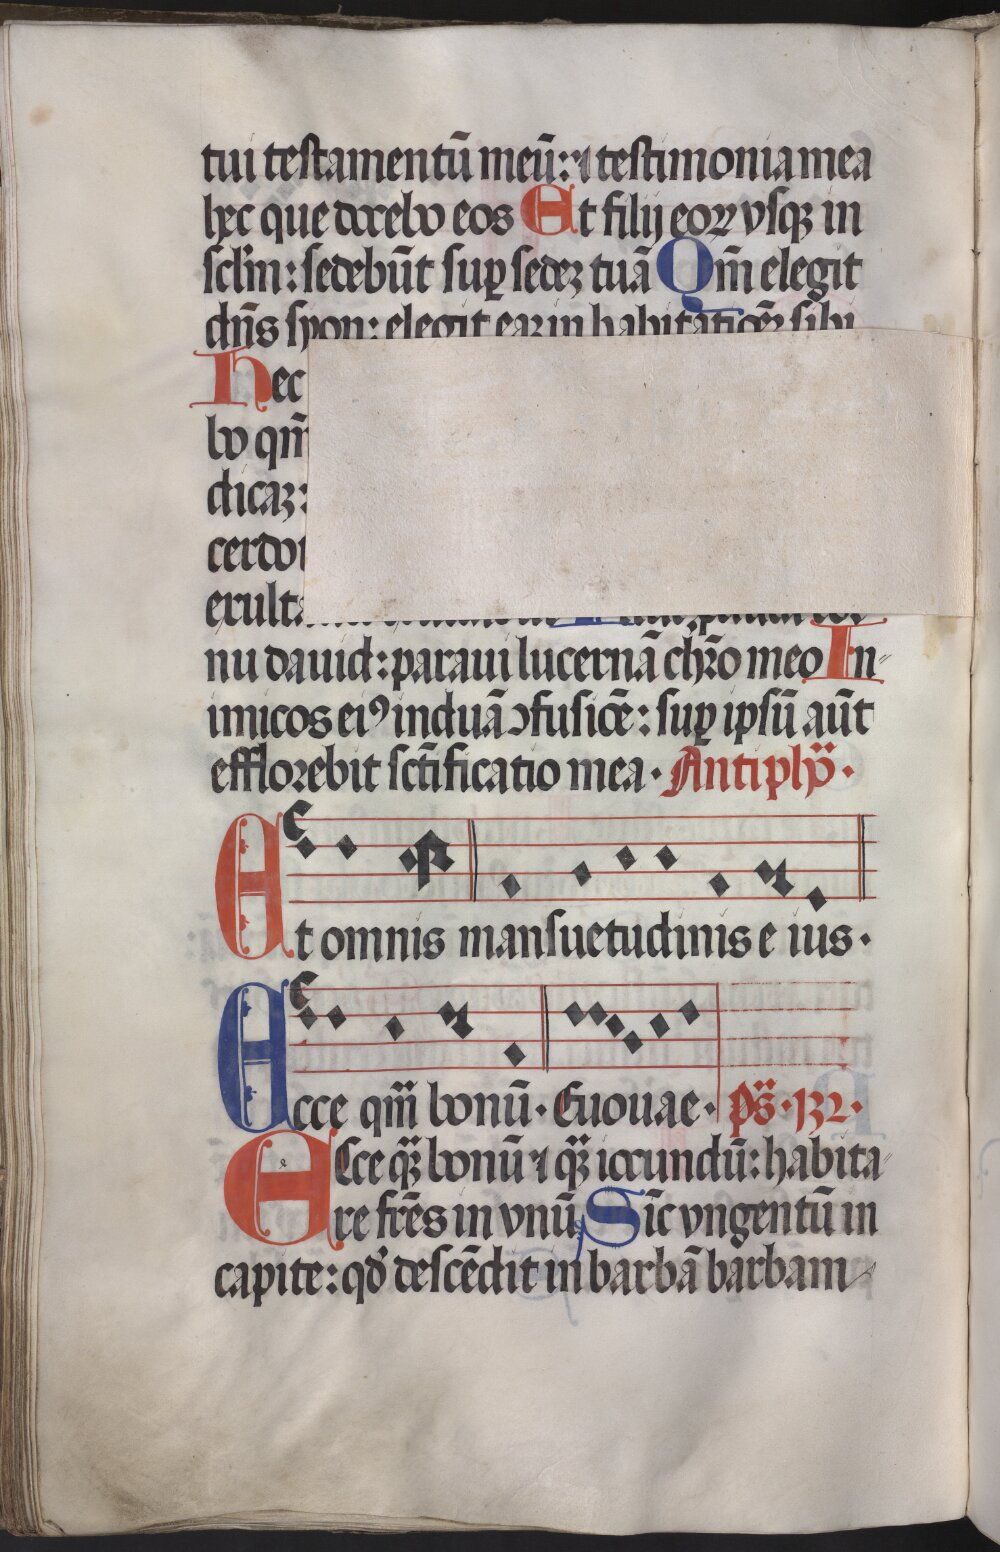 tui testamentū meū: ⁊ testimonia mea
hęc que docebo eos Et filij eoꝝ vsqꝫ in
sclm̄: sedebūt suꝑ sedeꝫ tuā Qm̄ elegit
dn̄s syon: elegit eaꝫ in habitatiōeꝫ sibi
Hec
bo qm̄
dicaꝫ:
cerdo
exulta
nu dauid: paraui lucernā chr̄o meo In-
imicos eiꝰ induā ↄfusiōe: suꝑ ipsū aūt
efflorebit sctīficatio mea. Antiph̄.
Et omnis mansuetudinis e ius.
Ecce qm̄ bonū. Euouae. ps̄.132.
ECce qꝫ bonū ⁊ qꝫ iocundū: habita-
re fr̄es in vnū Sīc vngentū in
capite: qđ descēdit in barbā barbam